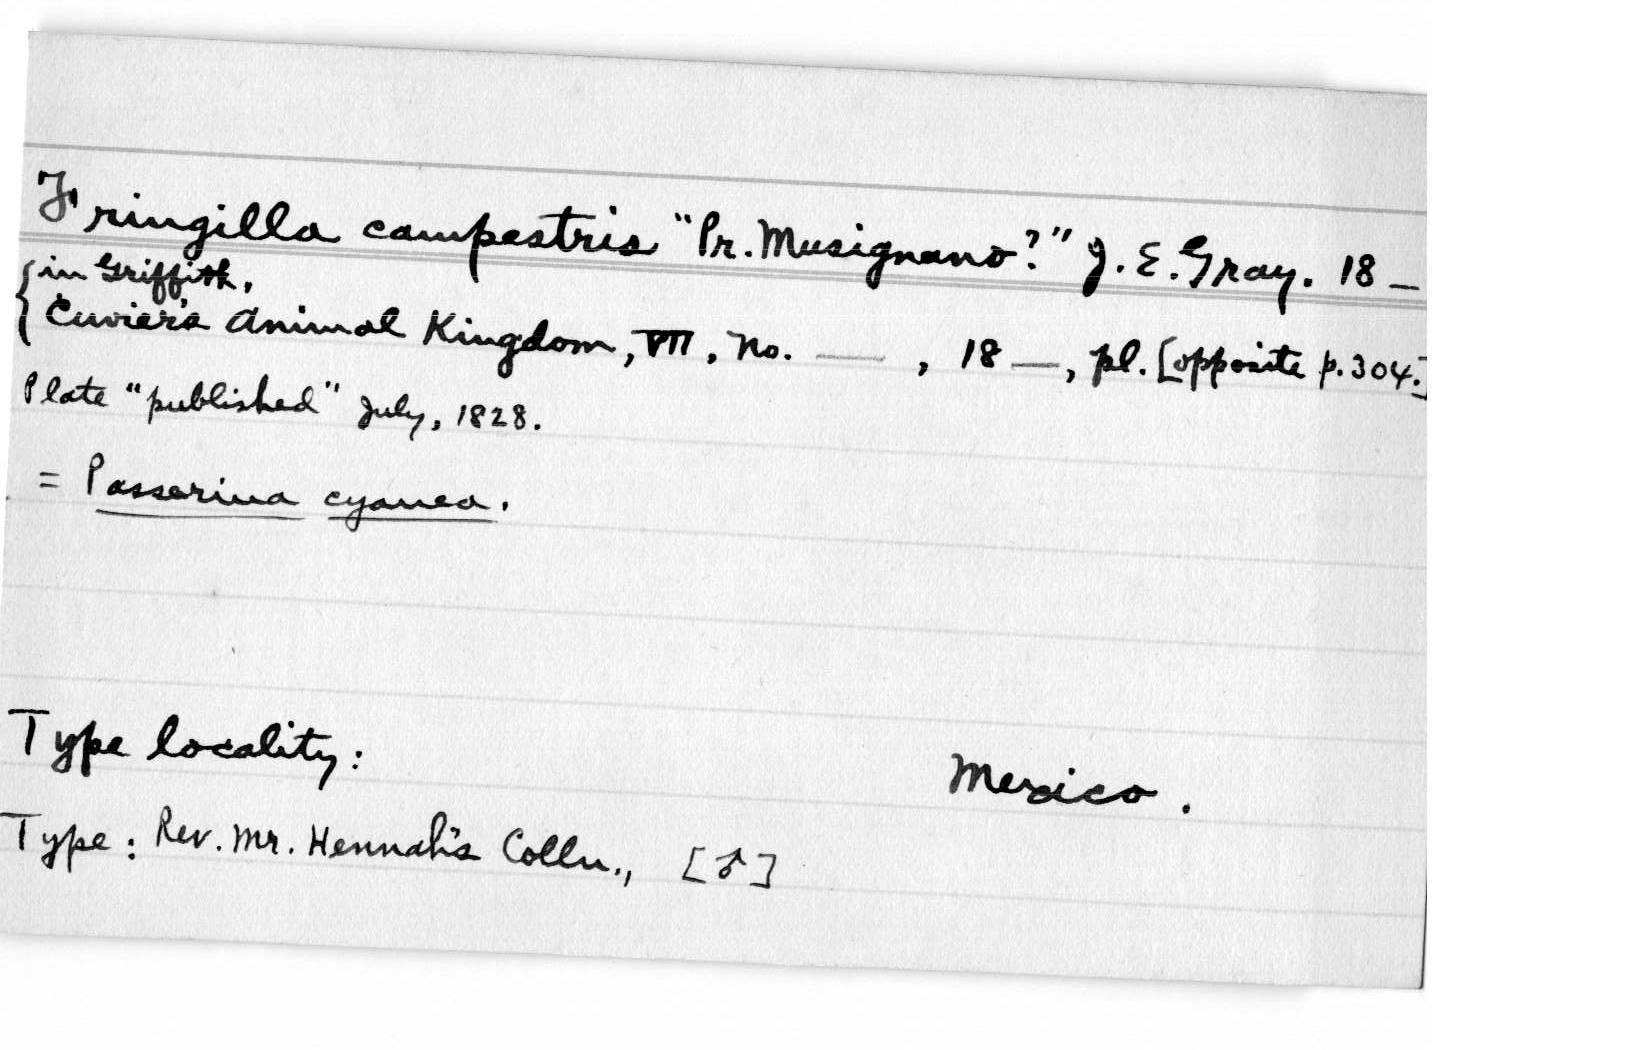 Fringilla campestris "Pr. Musignano?" J. E. Gray. 18 —
in Griffith,
Cuvier's Animal Kingdom, VII, No. —— , 18 —, pl. [opposite p. 304.]
Plate "published" July, 1828.
= Passerina cyanea.
Type locality: Mexico.
Type: Rev. Mr. Hennah's Colln., [♂]